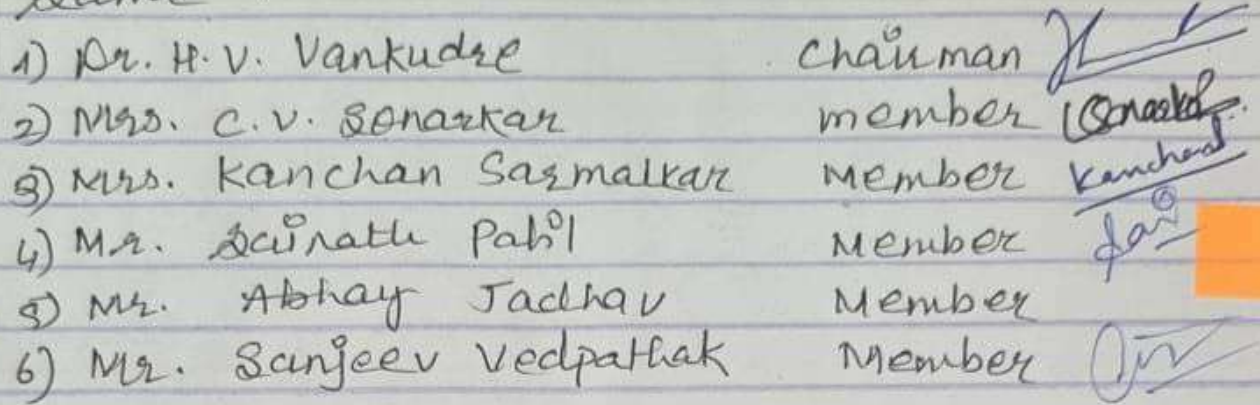 1) Dr. H. V. Vankudre Chairman
2) Mrs. C. V. Sonarkar member Sonarkar
3) Mrs. Kanchan Sarmalkar Member Kanchan
4) Mr. Sainath Patil Member Sai
5) Mr. Abhay Jadhav Member
6) Mr. Sanjeev Vedpathak Member